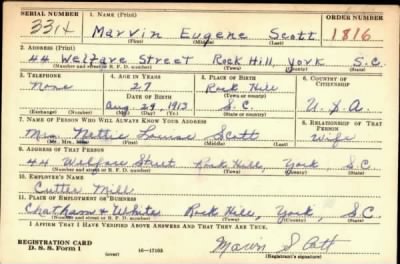 SERIAL NUMBER 1. NAME (Print) ORDER NUMBER
331 Marvin Eugene Scott 1816
(First) (Middle) (Last)
2. ADDRESS (Print)
44 Welfare Street Rock Hill, York S.C.
(Number and street or R. F. D. number) (Town) (County) (State)
3. TELEPHONE 4. AGE IN YEARS 5. PLACE OF BIRTH 6. COUNTRY OF CITIZENSHIP
None 27 Rock Hill
DATE OF BIRTH (Town or county)
Aug. 29, 1913 S.C. U.S.A
(Exchange) (Number) (Mo.) (Day) (Yr.) (State or country)
7. NAME OF PERSON WHO WILL ALWAYS KNOW YOUR ADDRESS 8. RELATIONSHIP OF THAT PERSON
Mrs. Nettie Louise Scott Wife
(Mr., Mrs., Miss) (First) (Middle) (Last)
9. ADDRESS OF THAT PERSON
44 Welfare Street Rock Hill, York, S.C
(Number and street or R. F. D. number) (Town) (County) (State)
10. EMPLOYER'S NAME
Cutter Mill
11. PLACE OF EMPLOYMENT OR BUSINESS
Chatham & White Rock Hill, York, S.C
(Number and street or R. F. D. number) (Town) (County) (State)
I AFFIRM THAT I HAVE VERIFIED ABOVE ANSWERS AND THAT THEY ARE TRUE.
REGISTRATION CARD
D. S. S. Form 1 (over) 16-17105
(Registrant's signature)